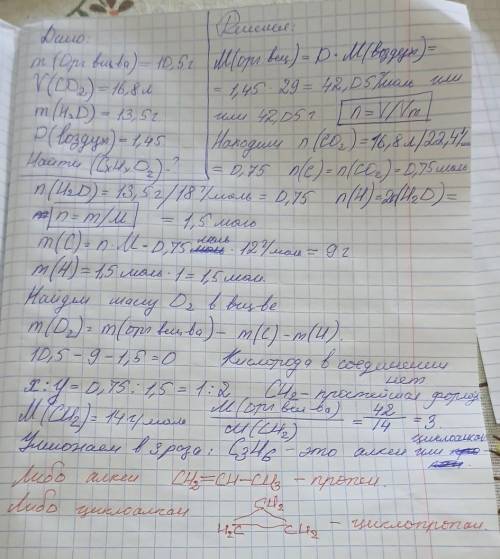 Дано:
m(Орг вещ-ва) = 10,5 г
V(CO2) = 16,8 л
m(H2O) = 13,5 г
D(воздух) = 1,45
Найти (CxHyOz)?
Решение:
M(орг вещ) = D · M(воздух) =
= 1,45 · 29 = 42,05 г/моль или
или 42,05 г n = V/Vm
Находим n(CO2) = 16,8 л/22,4 л/
= 0,75 n(C) = n(CO2) = 0,75 моль
n(H2O) = 13,5 г/18 г/моль = 0,75 n(H) = 2n(H2O) =
n = m/M = 1,5 моль
m(C) = n · M = 0,75 моль · 12 г/моль = 9 г
m(H) = 1,5 моль · 1 = 1,5 моль
Найдем массу O2 в вещ-ве
m(O2) = m(орг вещ-ва) - m(C) - m(H).
10,5 - 9 - 1,5 = 0 Кислорода в соединении нет
x : y = 0,75 : 1,5 = 1 : 2 CH2 - простейшая
M(CH2) = 14 г/моль M(орг вещ-ва)/M(CH2) = 42/14 = 3.
Умножаем в 3 раза: C3H6 - это алкен или циклоалкан
Либо алкен CH2=CH-CH3 - пропен.
Либо циклоалкан CH2 H2C CH2 - циклопропан.